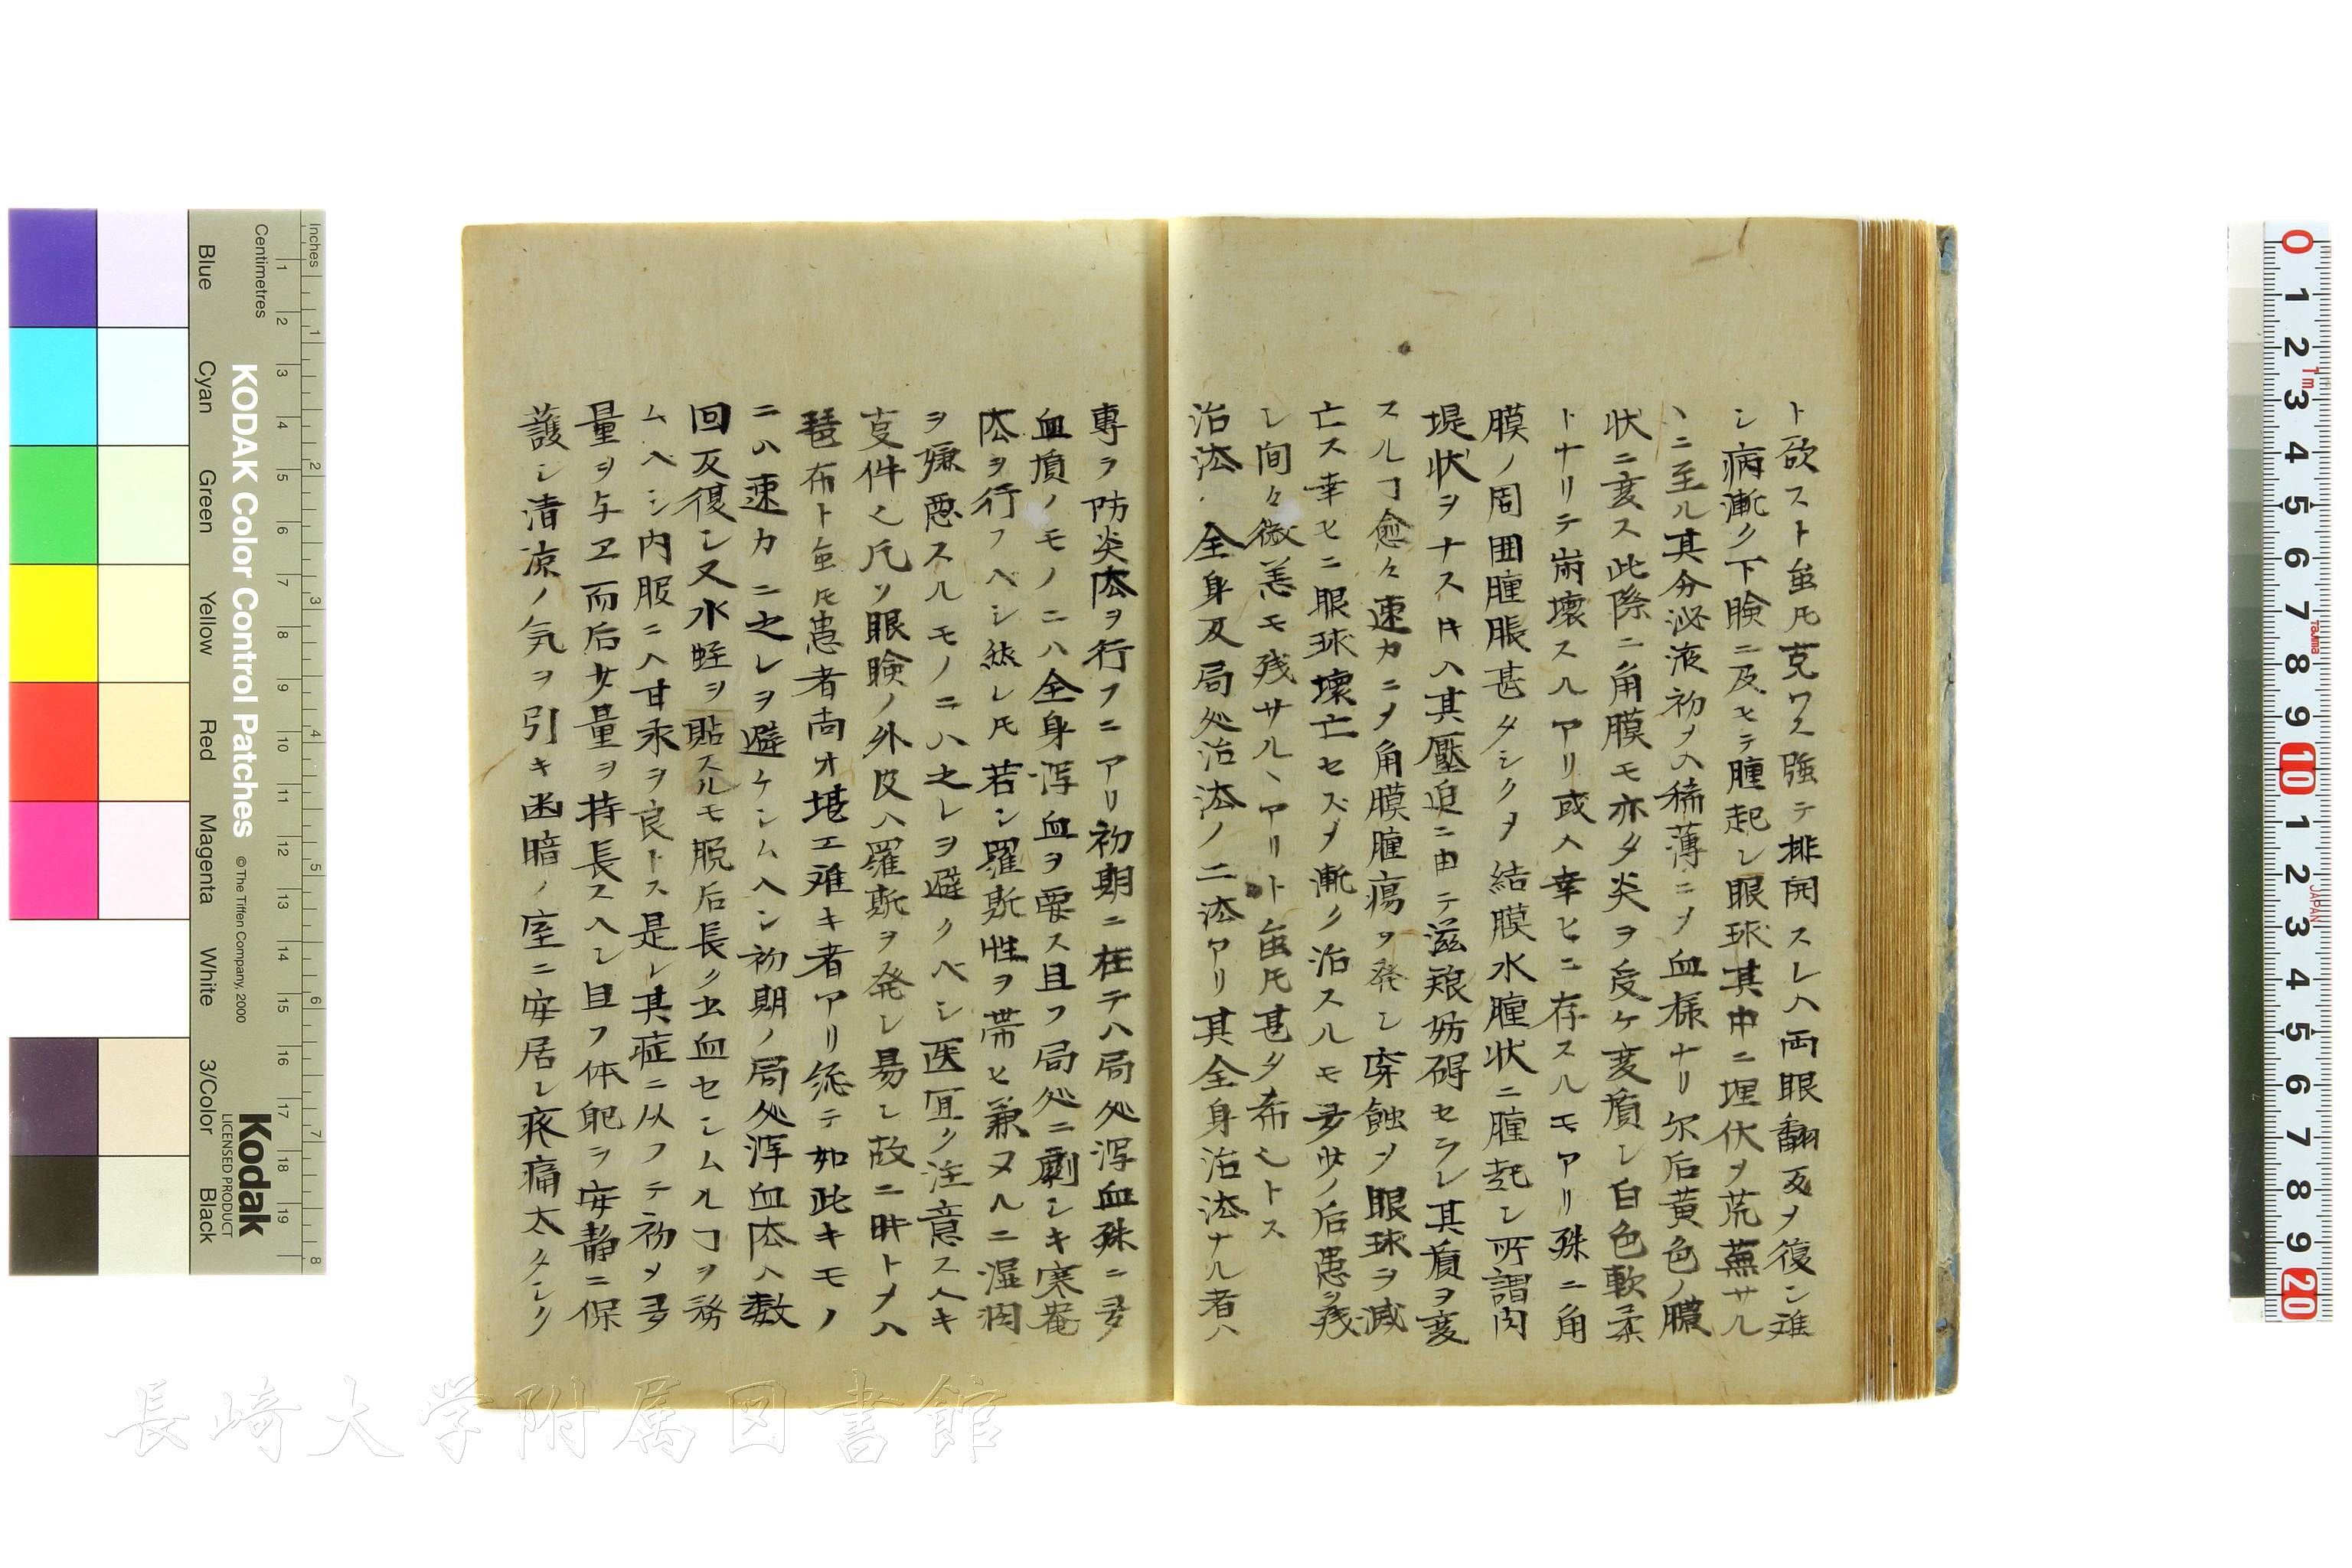 ト欲スト虽𪜈克ワス強テ排開スレハ両眼翻反ヲ復シ難
シ病漸ク下瞼ニ及ヒテ腫起シ眼球其中ニ埋伏ヲ荒蕪サル
ヽニ至ル其分泌液初メハ稀薄ニメ血様ナリ尓后黄色ノ膿
状ニ変ス此際ニ角膜モ亦タ炎ヲ受ケ変質シ白色軟柔
トナリテ崩壊スルアリ或ハ幸ヒニ存スルモアリ殊ニ角
膜ノ周囲腫脹甚タシクメ結膜水腫状ニ腫起シ所謂肉
堤状ヲナスキハ其壓迫ニ由テ滋粮妨碍セラレ其質ヲ変
スルヿ愈々速カニメ角膜腫瘍ヲ発シ穿蝕メ眼球ヲ滅
亡ス幸ヒニ眼球壊亡セズメ漸ク治スルモ多少ノ后患ヲ残
シ間々微恙モ残サルヽアリト虽𪜈甚タ希也トス
治法 全身及局処治法ノ二法アリ其全身治法ナル者ハ
専ラ防炎法ヲ行フニアリ初期ニ在テハ局処瀉血殊ニ多
血質ノモノニハ全身瀉血ヲ要ス且フ局処ニ劇シキ寒罨
法ヲ行フヘシ然レ𪜈若シ羅斯性ヲ帯ヒ兼ヌルニ湿潤
ヲ嫌悪スルモノニハ之レヲ避クベシ医宜ク注意スヘキ
支件也凡ソ眼瞼ノ外皮ハ羅斯ヲ発シ易シ故ニ時トメハ
琶布ト虽𪜈患者尚オ堪エ难キ者アリ総テ如此キモノ
ニハ速カニ之レヲ避ケシムヘシ初期ノ局処瀉血法ハ数
回反復シ又水蛭ヲ貼スルモ脱后長ク出血セシムルヿヲ務
ムヘシ内服ニハ甘汞ヲ良トス是レ其症ニ从フテ初メ多
量ヲ与ヱ而后少量ヲ持長スヘシ且フ体躯ヲ安静ニ保
護シ清涼ノ気ヲ引キ幽暗ノ室ニ安居シ疼痛太タシク
長崎大学附属図書館
KODAK Color Control Patches
© The Tiffen Company, 2000
Kodak
LICENSED PRODUCT
Inches
Centimetres
Blue
Cyan
Green
Yellow
Red
Magenta
White
3/Color
Black